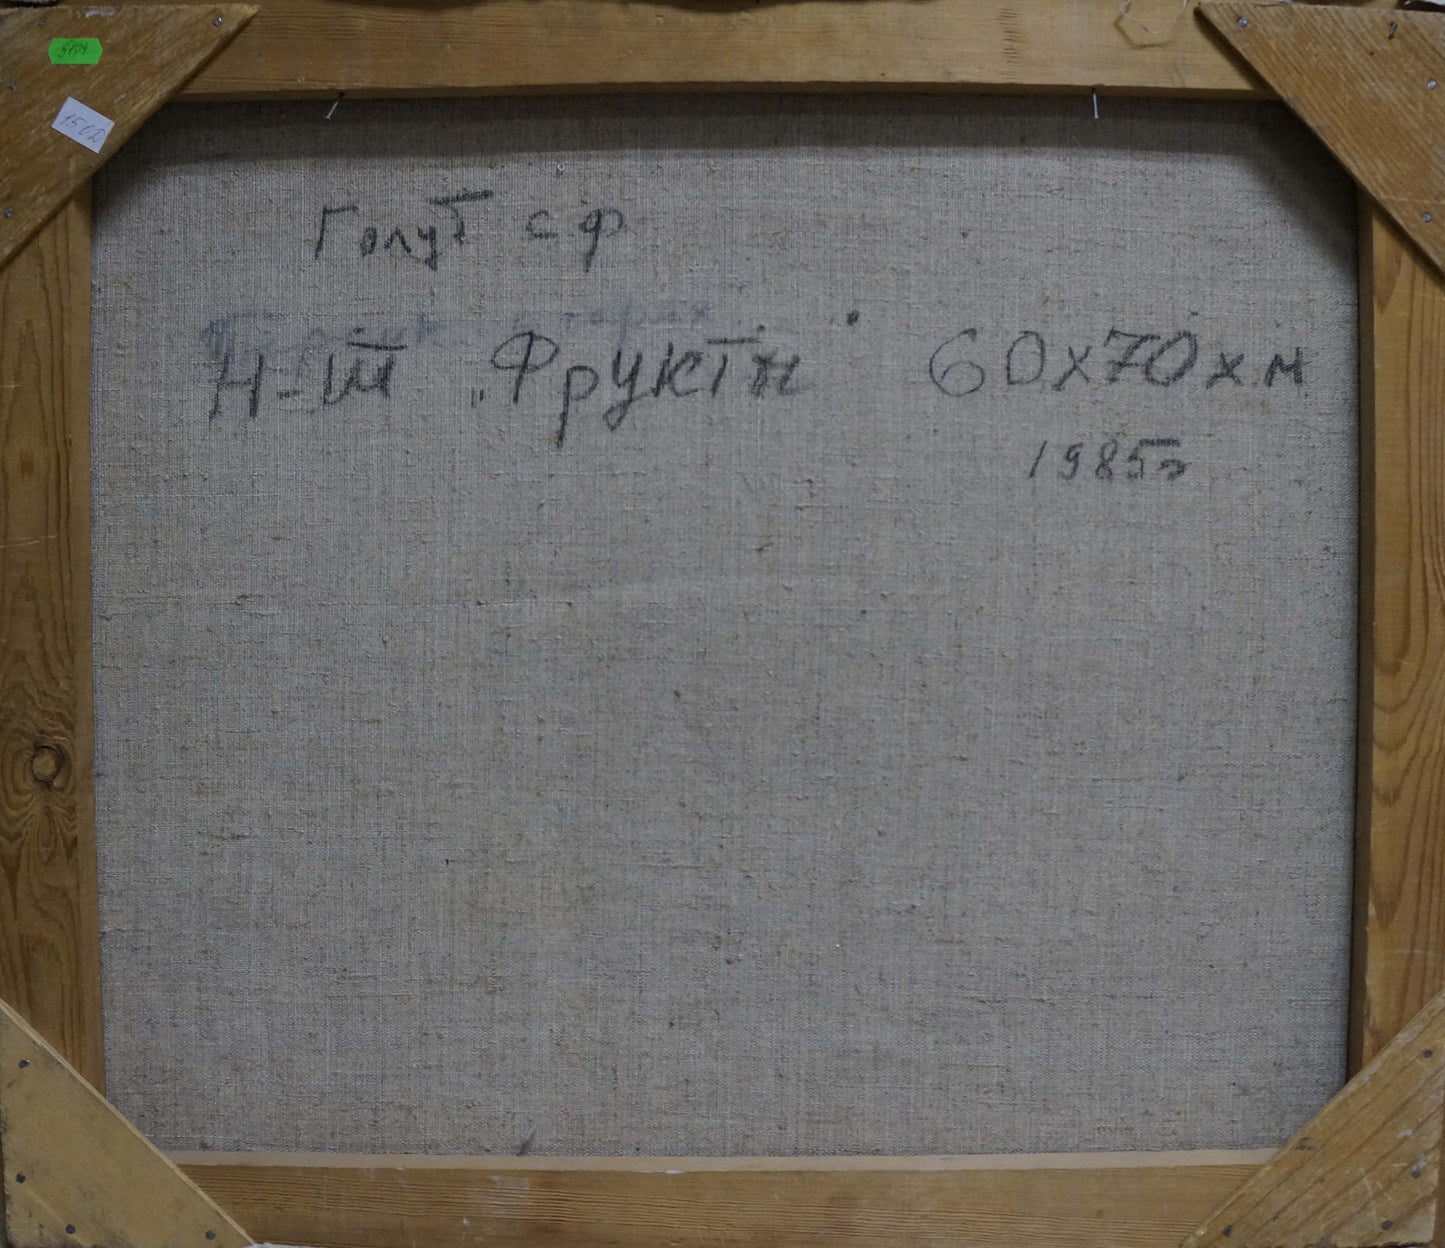 5109
1502
Голут С Ф
Н-т „Фрукти" 60х70 х.м
1985г